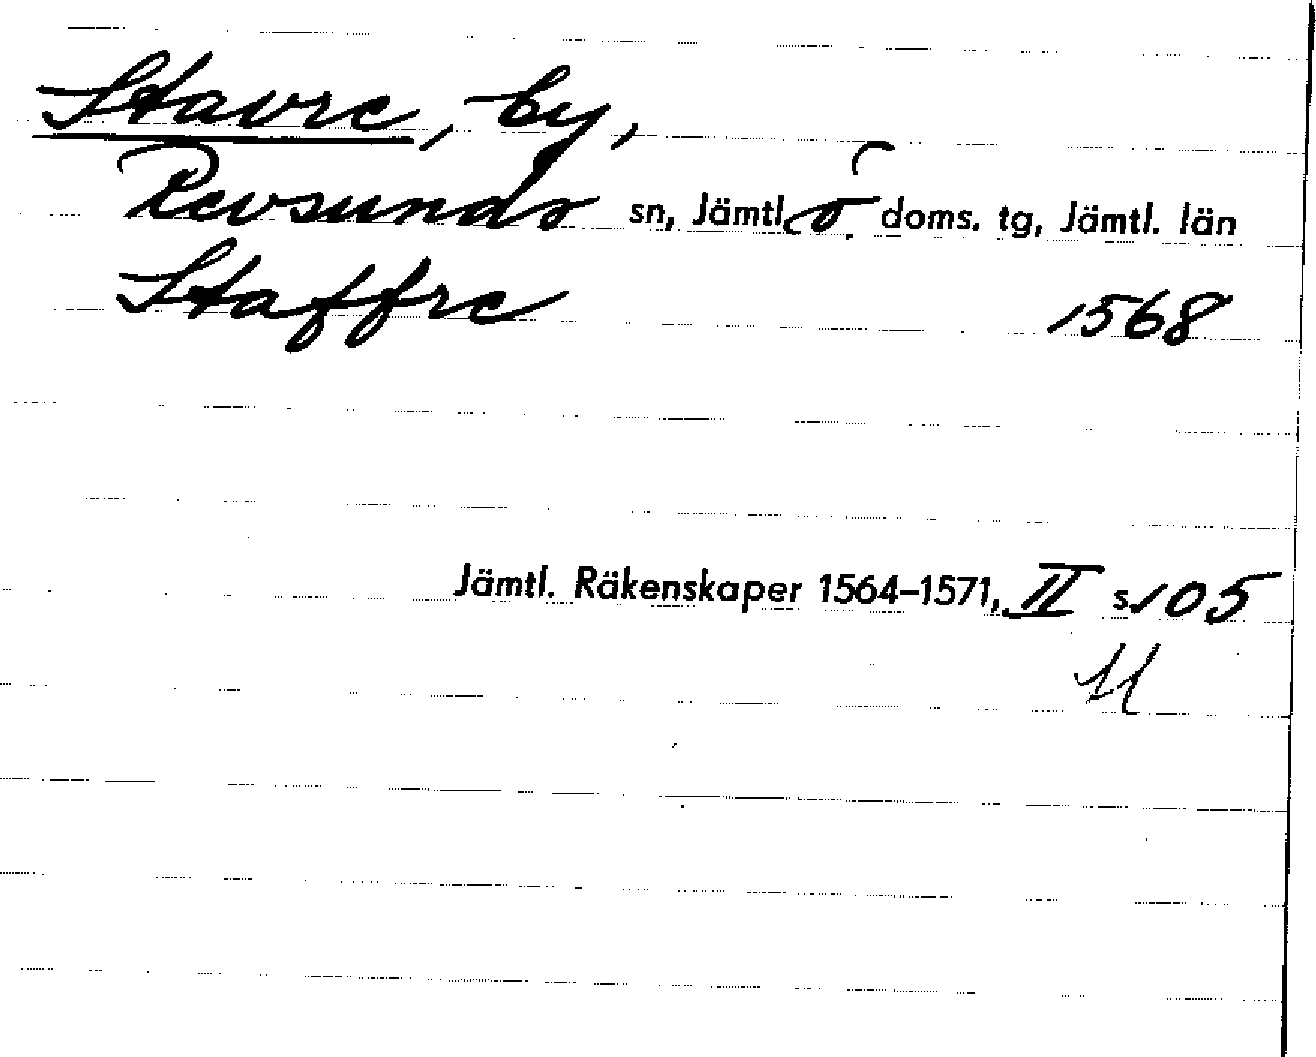 Stavre, by,
Revsunds sn, Jämtl. ö. doms. tg, Jämtl. län
Staffre 1568
Jämtl. Räkenskaper 1564–1571, II s. 105